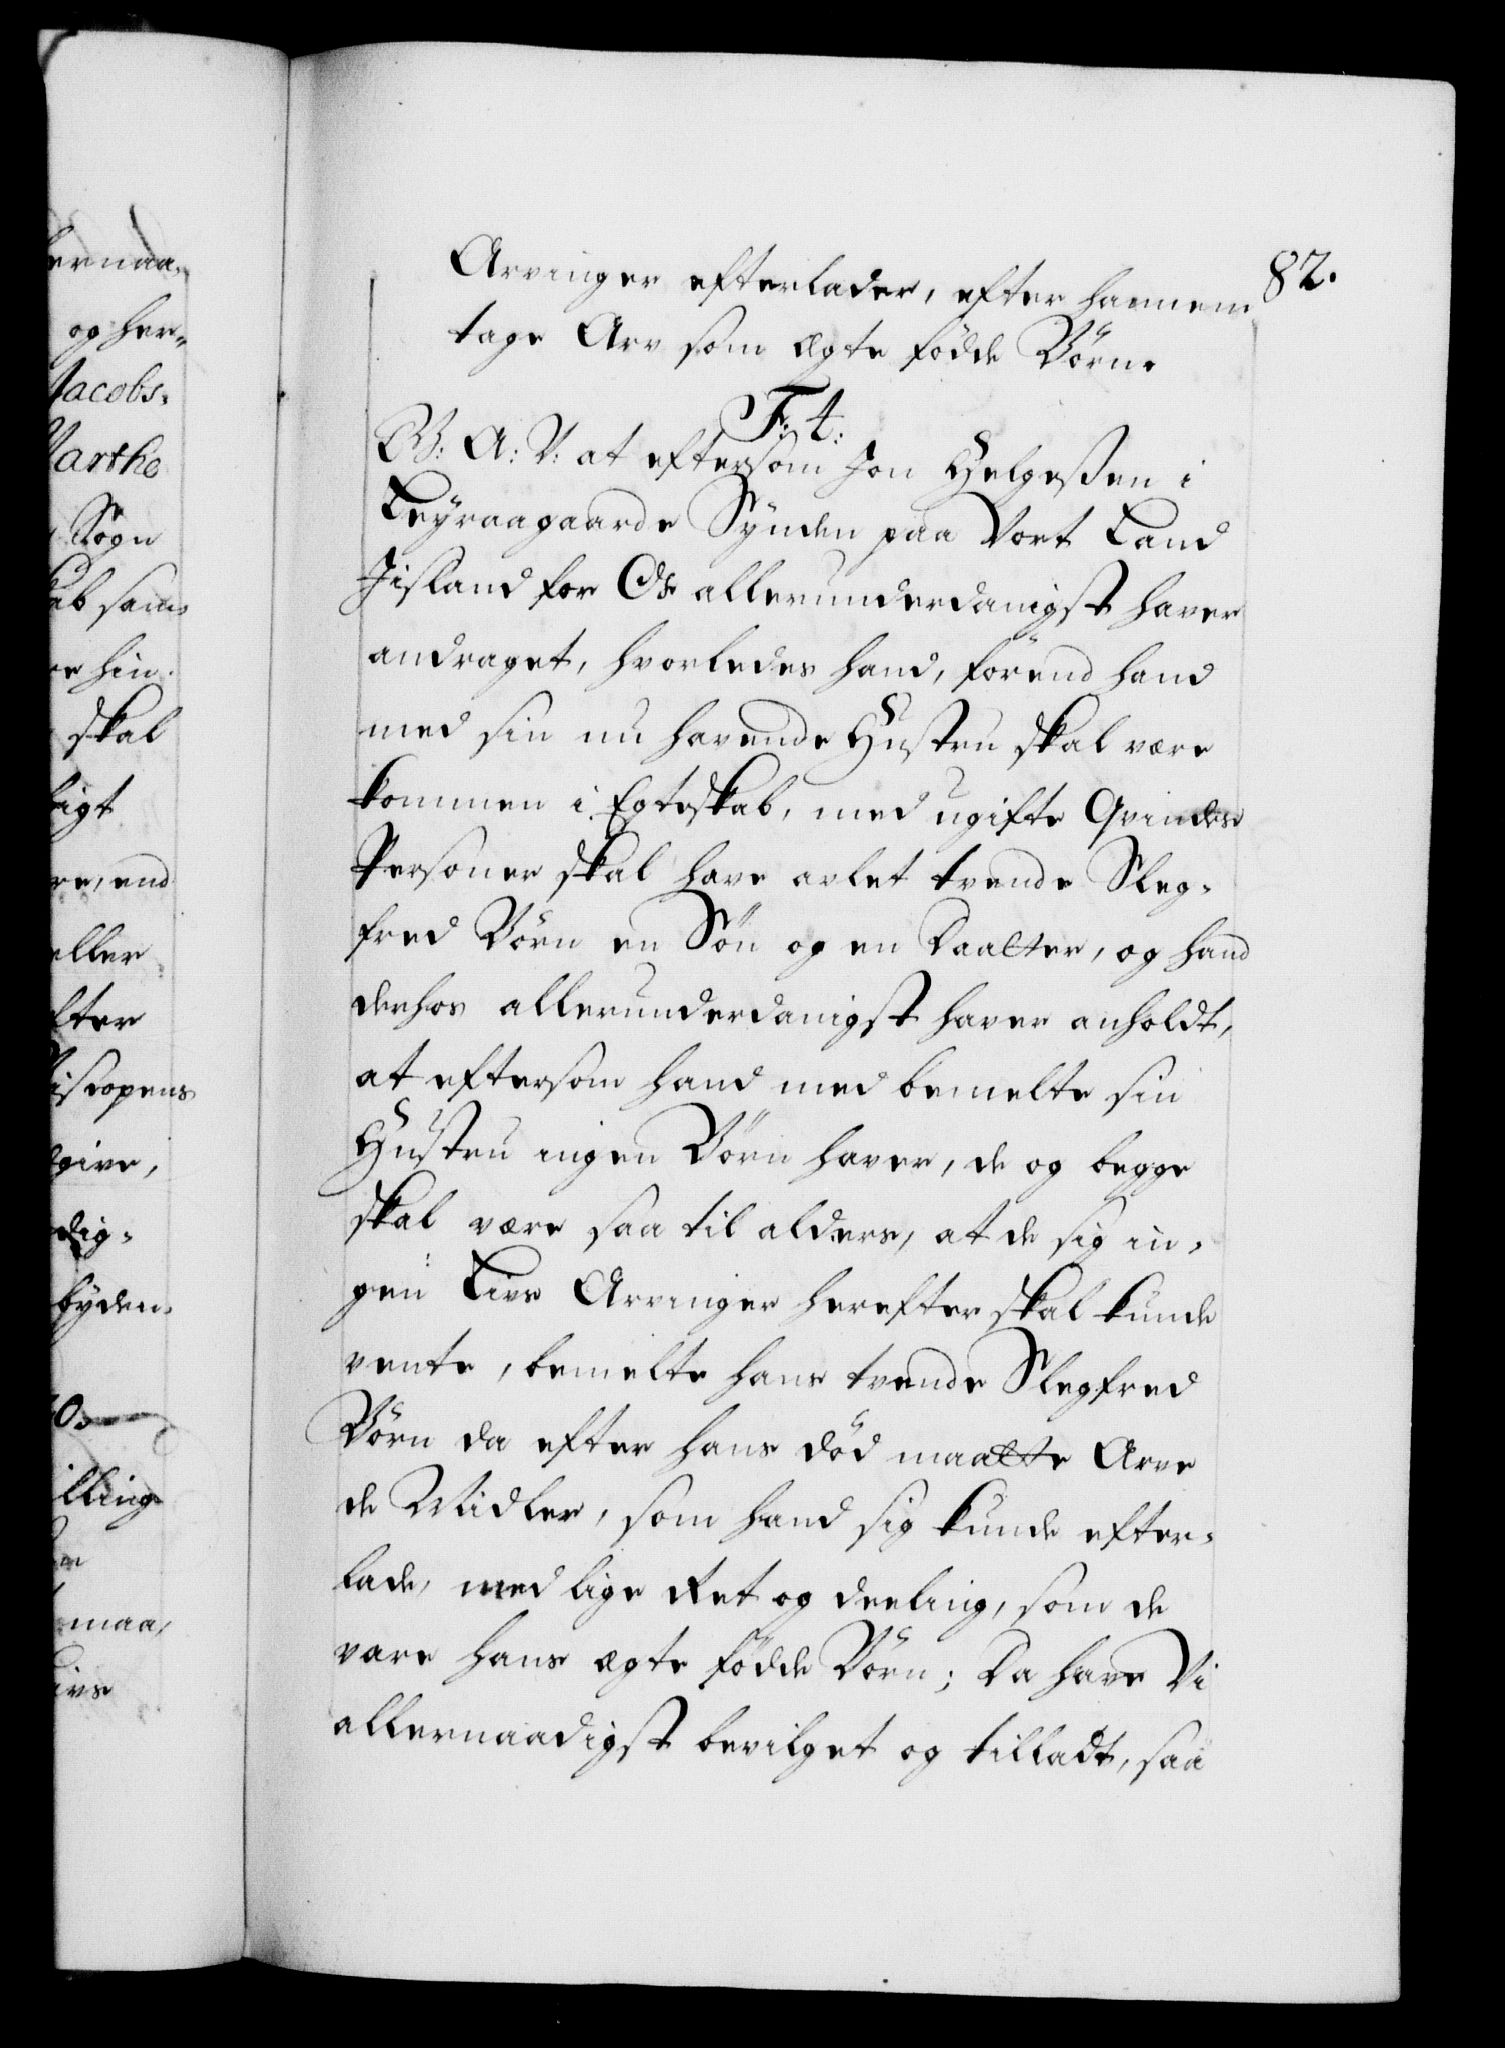 82.
Arvinger efterlader, efter hannem
tage Arv som ægte födde Börn.
F: 4:
G: A: V: at eftersom Jon Helgeßen i
Leyraagaarde Synden paa Vort Land
Jisland for Os allerunderdanigst haver
andraget, hvorledes hand, förend hand
med sin nu havende Hustru skal være
kommen i Egteskab, med ugifte Qvindes
Personer skal have avlet tvende Sleg-
fred Börn en Sön og en Daatter, og hand
derhos allerunderdanigst haver anholdt,
at eftersom hand med bemelte sin
Hustru ingen Börn haver, de og begge
skal være saa til alders, at de sig in-
gen Livs Arvinger herefter skal kunde
vente, bemelte hans tvende Slegfred
Börn da efter hans död maatte Arve
de Midler, som hand sig kunde efter-
lade, med lige Ret og deeling, som de
vare hans ægte födde Börn; Da have Vi
allernaadigst bevilget og tilladt, saa
ernaa-
og her-
Jacobs-
Marthe
Sogn
kab sam-
re hin
skal
ligt
re, end
eller
fter
iscopens
give,
dig-
byden-
illing
maa,
ivs